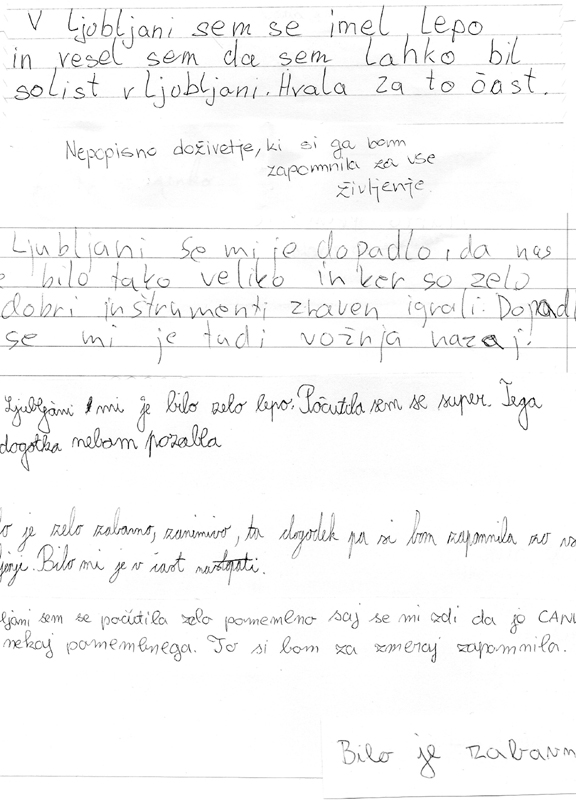 V Ljubljani sem se imel lepo
in vesel sem da sem lahko bil
solist v Ljubljani. Hvala za to čast.
Nepopisno doživetje, ki si ga bom
zapomnila za vse
življenje.
Ljubljani se mi je dopadlo, da nas
je bilo tako veliko in ker so zelo
dobri instrumenti zraven igrali. Dopadl
se mi je tudi vožnja nazaj.
Ljubljani mi je bilo zelo lepo. Počutila sem se super. Tega
dogotka nebom pozabla
lo je zelo zabavno, zanimivo, ta dogodek pa si bom zapomnila za vs
ljenje. Bilo mi je v čast nastopati.
ljani sem se počutila zelo pomembno saj se mi zdi da jo
nekaj pomembnega. To si bom za zmeraj zapomnila.
Bilo je zabavn